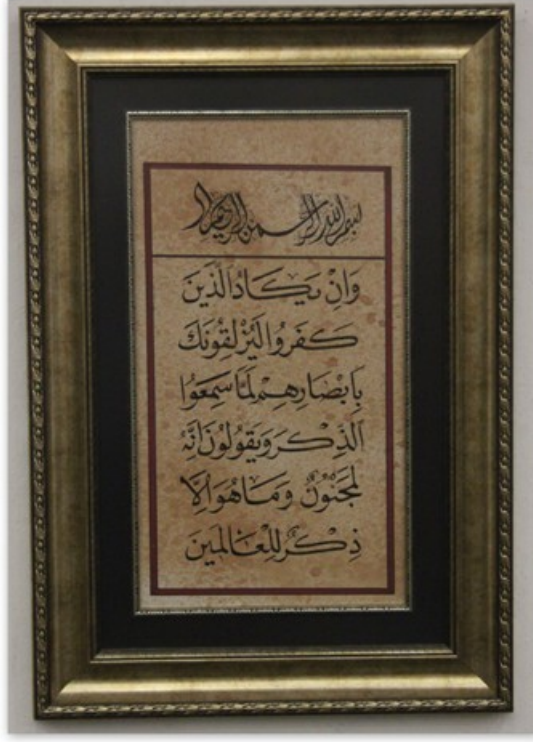 بسم الله الرحمن الرحيم
وَاِنْ يَكَادُ الَّذٖينَ
كَفَرُوا لَيُزْلِقُونَكَ
بِاَبْصَارِهِمْ لَمَّا سَمِعُوا
الذِّكْرَ وَيَقُولُونَ اِنَّهُ
لَمَجْنُونٌ وَمَا هُوَ اِلَّا
ذِكْرٌ لِلْعَالَمٖينَ